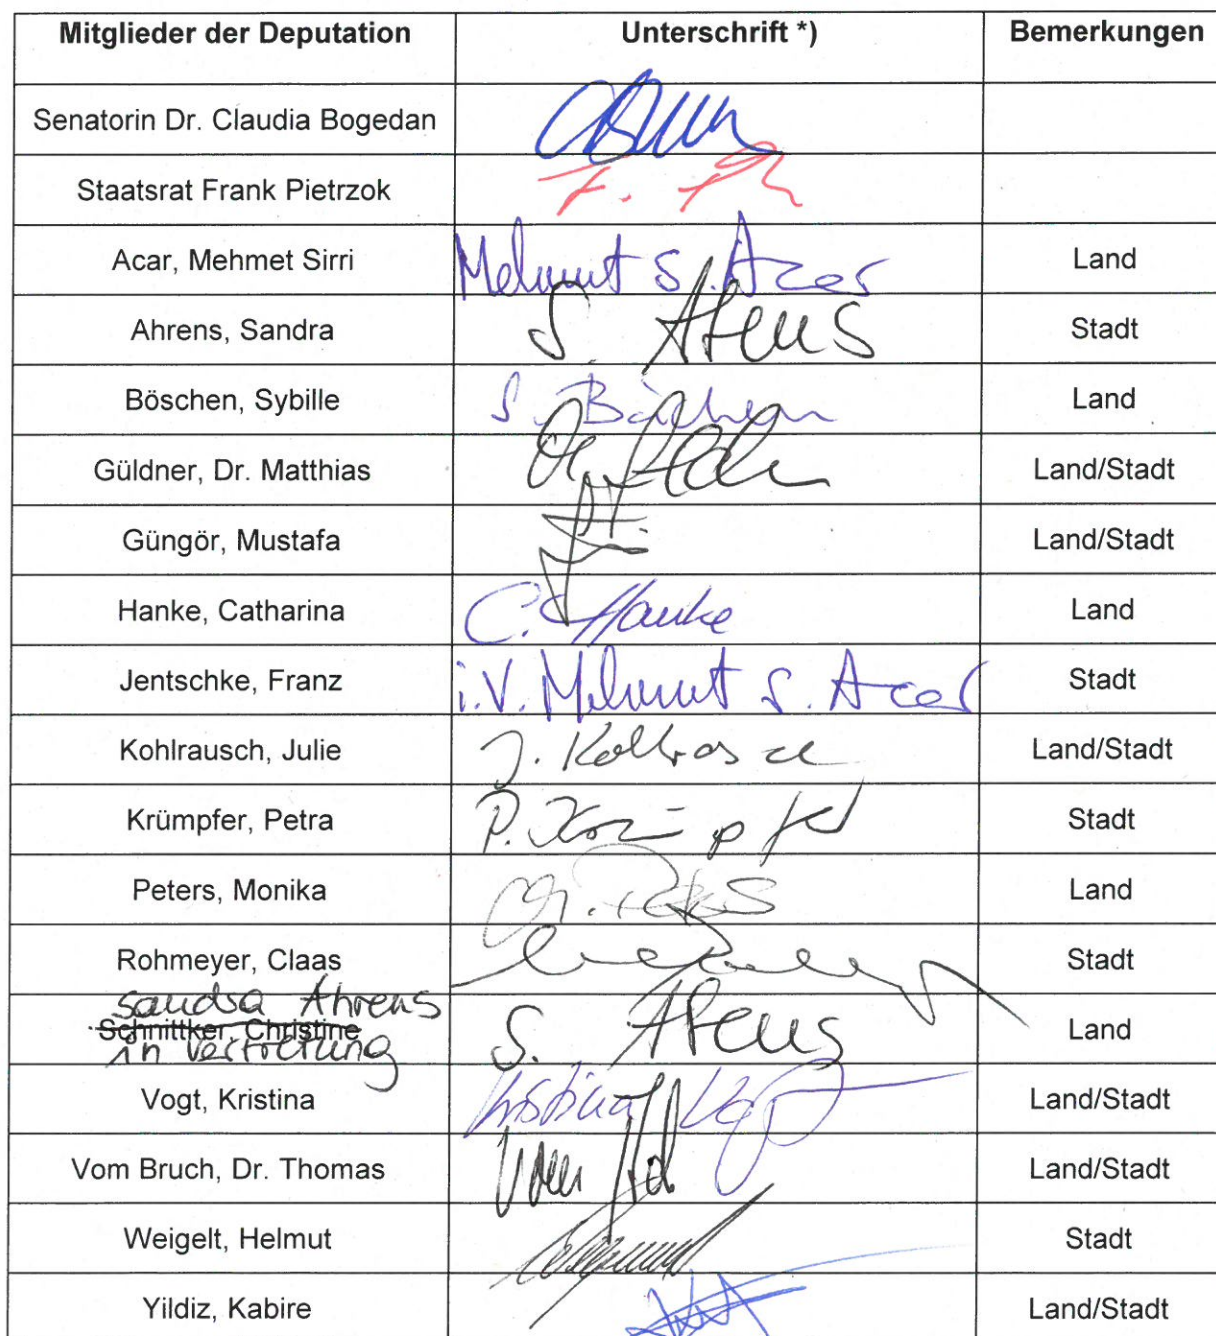 Mitglieder der Deputation Unterschrift *) Bemerkungen
Senatorin Dr. Claudia Bogedan
Staatsrat Frank Pietrzok F.
Acar, Mehmet Sirri Mehmet S. Acar Land
Ahrens, Sandra S. Ahrens Stadt
Böschen, Sybille S. Böschen Land
Güldner, Dr. Matthias Land/Stadt
Güngör, Mustafa Land/Stadt
Hanke, Catharina C. Hanke Land
Jentschke, Franz i.V. Mehmet S. Acar Stadt
Kohlrausch, Julie J. Kohlrausch Land/Stadt
Krümpfer, Petra P. Krümpfer Stadt
Peters, Monika M. Peters Land
Rohmeyer, Claas Stadt
Sandra Ahrens
Schnittker, Christine S. Ahrens Land
in Vertretung
Vogt, Kristina Kristina Vogt Land/Stadt
Vom Bruch, Dr. Thomas Land/Stadt
Weigelt, Helmut Stadt
Yildiz, Kabire Land/Stadt